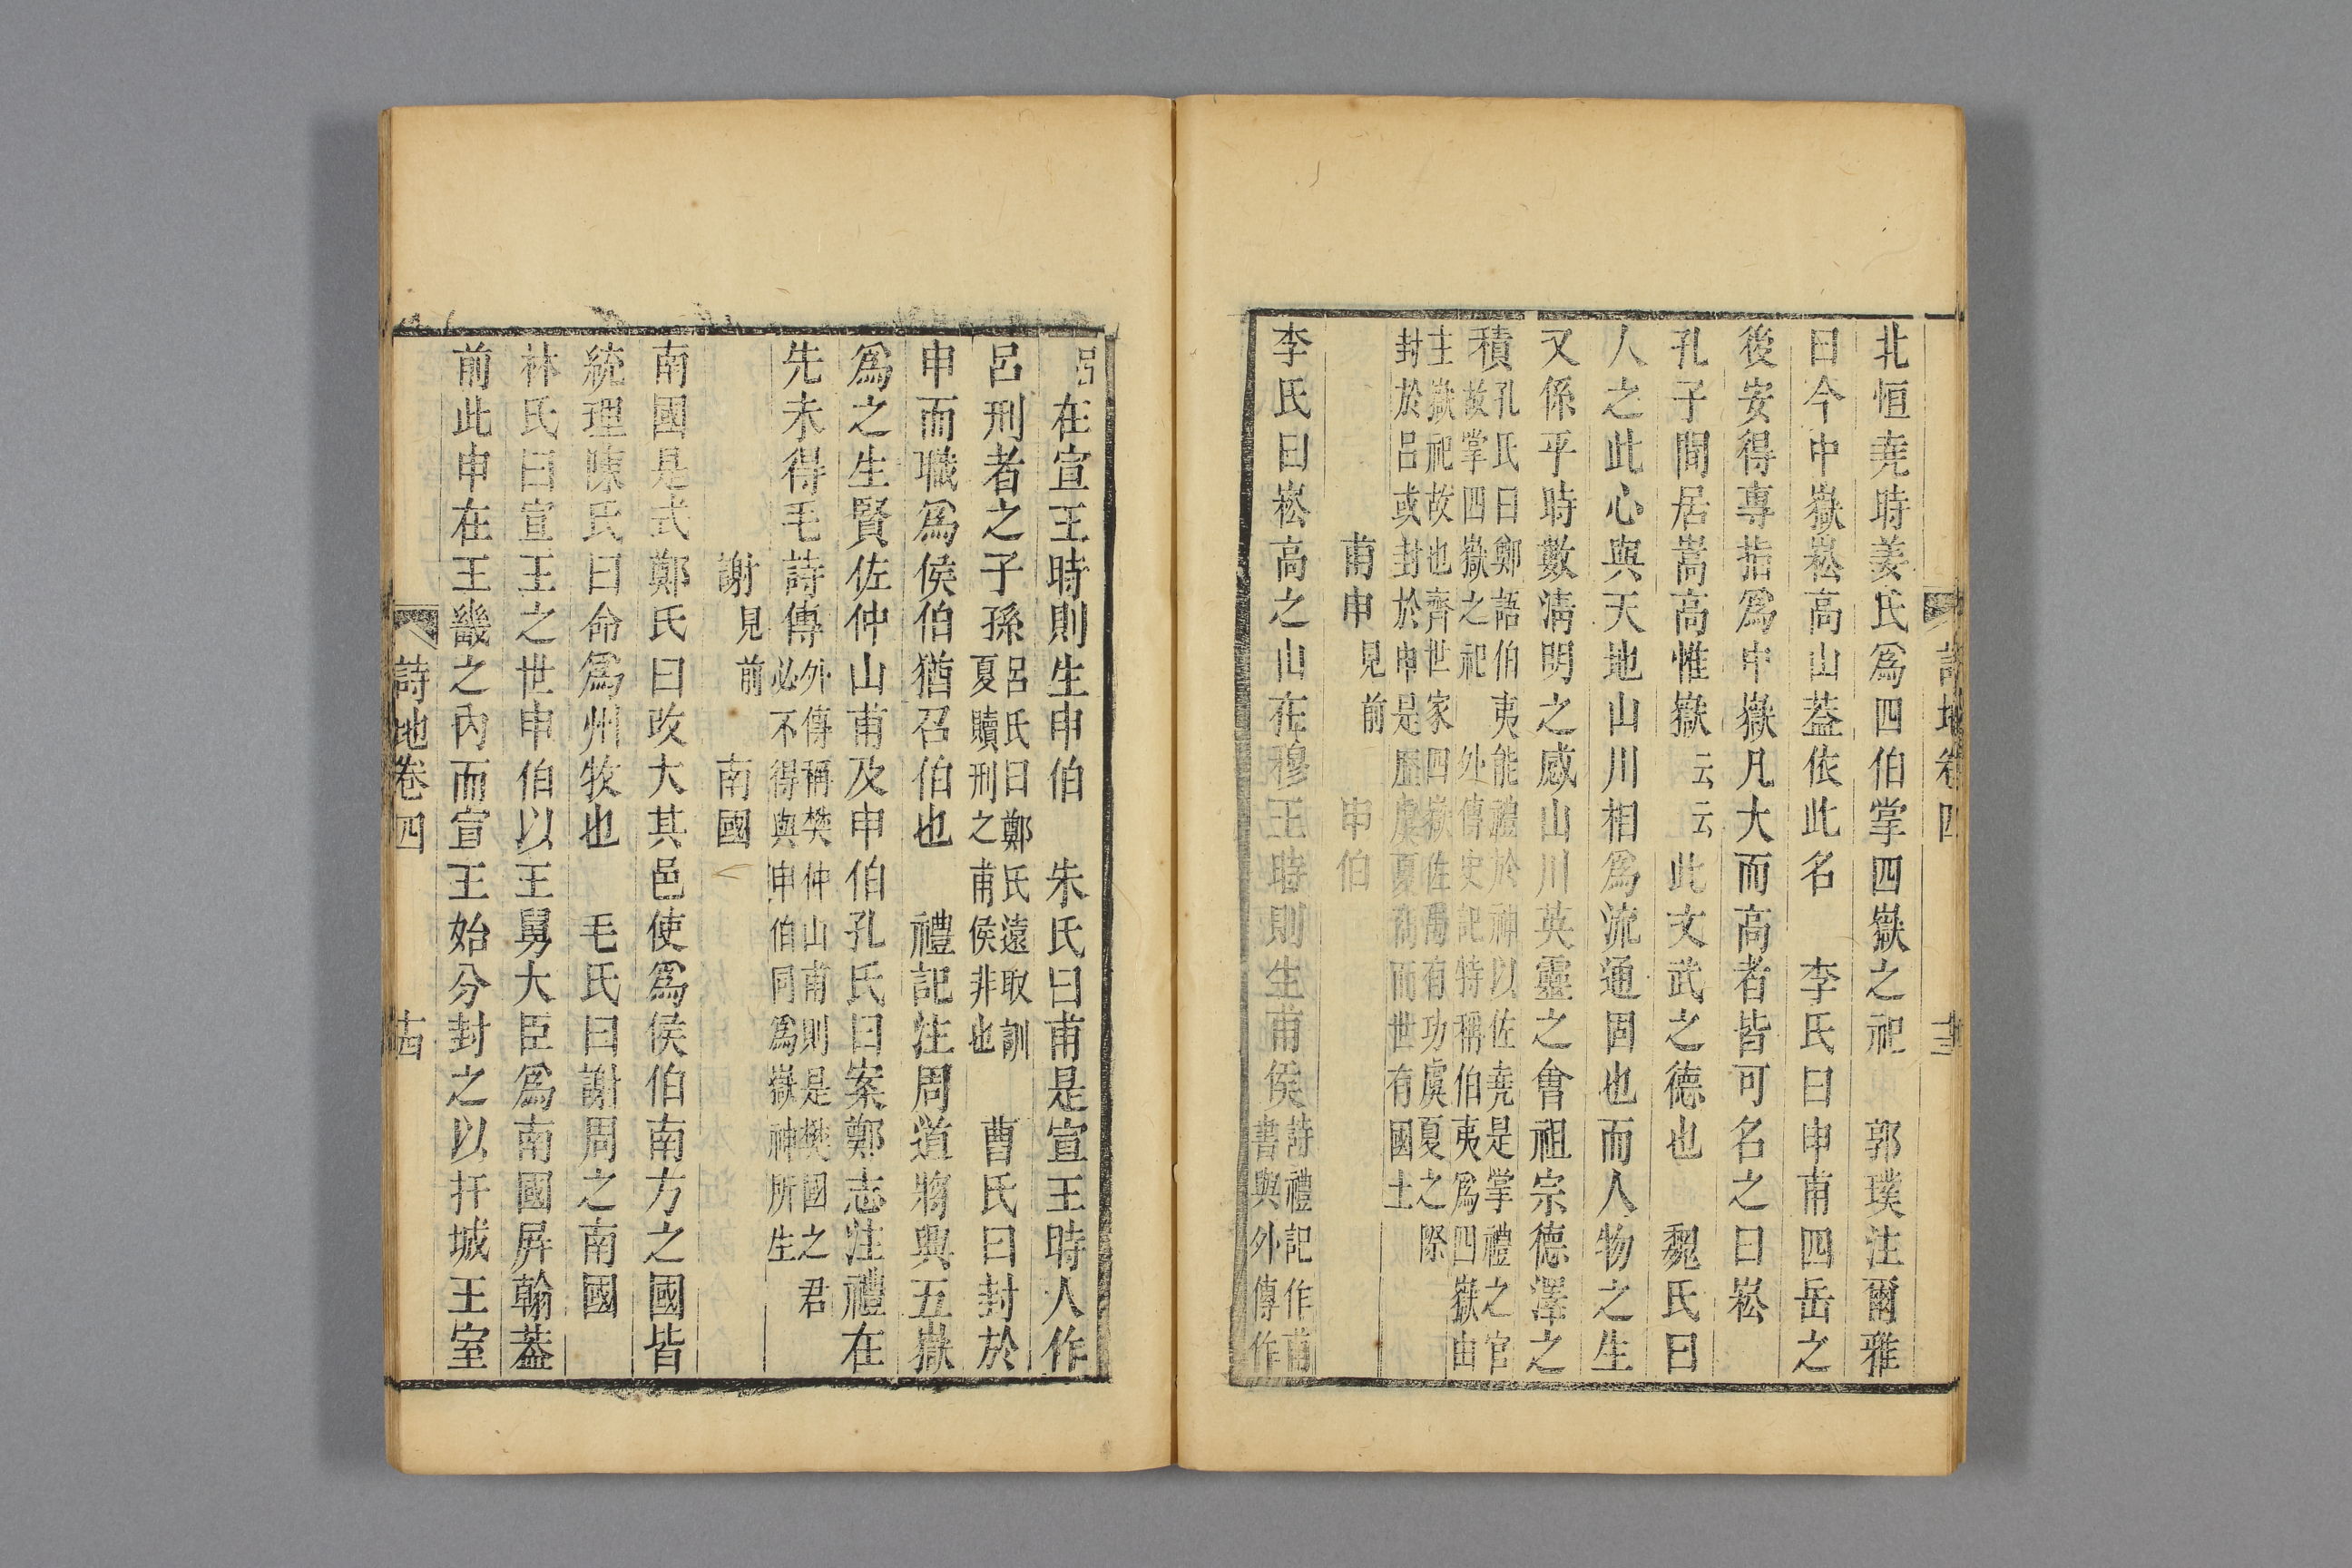 詩地卷四
北恒堯時姜氏爲四伯掌四嶽之祀　郭璞注爾雅
曰今中嶽崧高山葢依此名　李氏曰申甫四岳之
後安得專指爲中嶽凡大而高者皆可名之曰崧
孔子閒居嵩高惟嶽云云此文武之德也　魏氏曰
人之此心與天地山川相爲流通固也而人物之生
又係乎時數淸明之感山川英靈之會祖宗德澤之
積孔氏曰鄭語伯夷能禮於神以佐堯是掌禮之官
故掌四嶽之祀　外傳史記特稱伯夷爲四嶽由
主嶽祀故也齊世家四嶽佐禹有功虞夏之際
封於呂或封於申是歷虞夏商而世有國土
甫申見前　申伯
李氏曰崧高之山在穆王時則生甫侯詩禮記作甫
書與外傳作
呂在宣王時則生申伯　朱氏曰甫是宣王時人作
呂刑者之子孫呂氏曰鄭氏遠取訓
夏贖刑之甫侯非也　曹氏曰封於
申而職爲侯伯猶召伯也　禮記注周道將興五嶽
爲之生賢佐仲山甫及申伯孔氏曰案鄭志注禮在
先未得毛詩傳外傳稱樊仲山甫則是樊國之君
必不得與申伯同爲嶽神所生
謝見前　南國
南國是式鄭氏曰改大其邑使爲侯伯南方之國皆
統理陳氏曰命爲州牧也　毛氏曰謝周之南國
林氏曰宣王之世申伯以王舅大臣爲南國屛翰葢
前此申在王畿之內而宣王始分封之以扞城王室
詩地卷四